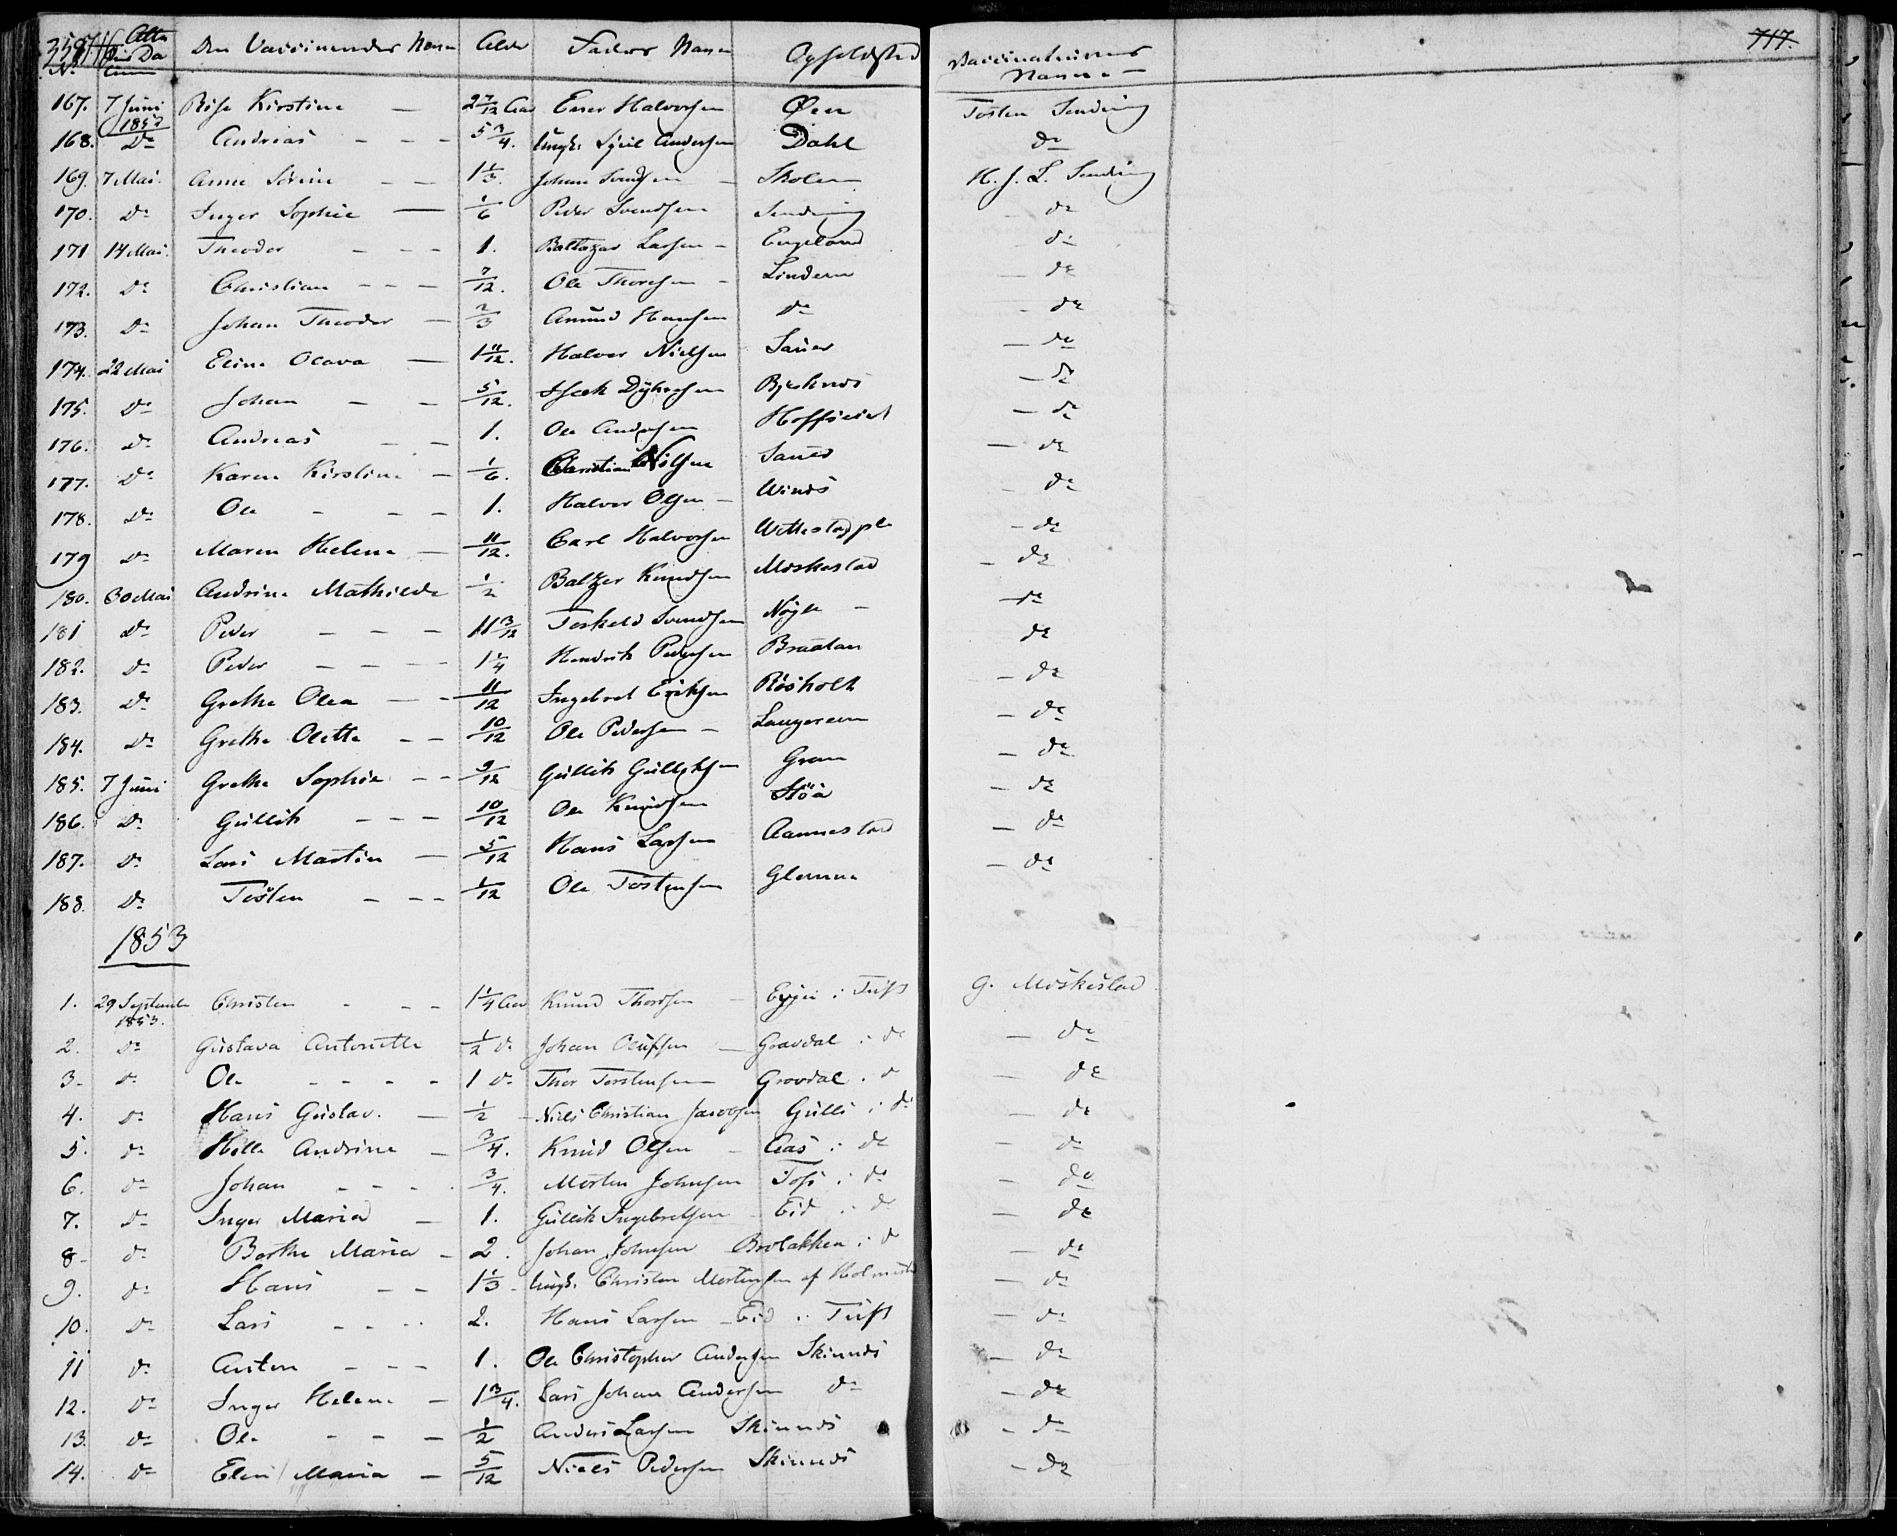 358. 716 Atte- Den Vaccineredes Navn Alder Faders Navn Opholdsted Vaccinateurens 717.
No. Datum Navn
167. 7 Juni 1852 Kirstine — 2 7/12 Aar Halvorsen Øen Tosten Sending
168. Do Andreas - - - 5 3/4. Ungk. Andersen Dahl do
169. 7 Mai. Anne — — 1 1/3. Johan Svendsen — Skolen H. J. L. Sending
170. Do Inger Sophie — 1/6 Peder Svendsen Sending — do
171 14 Mai. Theodor - - - 1. Baltazar Larsen — Engeland do
172. Do Christian - - - 7/12. Ole Thoresen - Lindem — do
173. Do Johan Theodor — 2/3 Amund Hansen do - do
174. 22 Mai Eline Olava — 1 11/12. Halvor Nielsen Sauer — do
175. Do Johan — — 5/12. Isak — do
176. Do Andreas — — 1. Ole Andersen — do
177. Do Karen Kirstine — 1/6. Christian Nilsen Sauer — do
178. Do Ole - - - 1. Halvor Olsen — — do
179 Do Maren Helene — 11/12. Carl Halvorsen - do
180. 30 Mai Andrine Mathilde 1/2 Baltzer Knudsen Moskestad — do
181 Do Peder - - - 11 3/12 Torkeld Svendsen — do
182. Do Peder - - - 1 1/4 Hendrik Pedersen Braatan do
183. Do Grethe Olea — — 11/12 Ingebret Eriksen Røsholt — do
184. Do Grethe Olette — — 10/12 Ole Pedersen — Langerem — do
185. 7 Juni Grethe Sophie — — 9/12 Gullik Gulliksen Gran — do
186. Do Gullik - - - 10/12 Ole Knudsen Støa — do
187. Do Lars Martin — 5/12 Hans Larsen Aannestad — do
188. Do Tosten - - - 1/12 Ole Tostensen Glenna — do
1853
1. 29 September 1853. Christen - - 1 1/4 Aar Knud Thorsen — i Tuft G. Moskestad
2. Do Gustava Antonette 1/2 do Johan Olufsen — Gravdal i do — do
3. do Ole - - - - 1 do Thor Torstensen Gravdal i do — do
4. do Hans Gustav. — 1/2 Niels Christian Jacobsen Gulli i do — do
5. do Helle Andrine — 3/4. Knud Olsen — Aas i do — do
6. do Johan - - - 3/4. Morten Johnsen i do — do
7. do Inger Maria — 1. Gullik Ingebretsen Eid i do — do
8. do Berthe Maria - 2. Johan Johnsen Brobakken i do — do
9. do Hans — — 1 1/3 Ungk. Christen Mortensen af — do
10. do Lars - - - 2. Hans Larsen — Eid i Tuft — do
11 do Anton - - - 1. Ole Christopher Andersen Skinnes — do
12. do Inger Helene — 1 3/4. Lars Johan Andersen do — do
13. do Ole - - - 1/2 Anders Larsen Skinnes - do
14. do Eleni Maria — 5/12 Niels Pedersen Skinnes — do